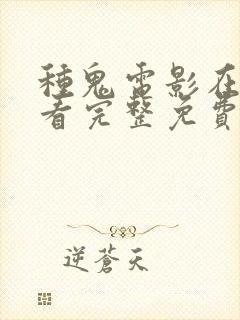 種鬼電影在
看完整免費
逆蒼天